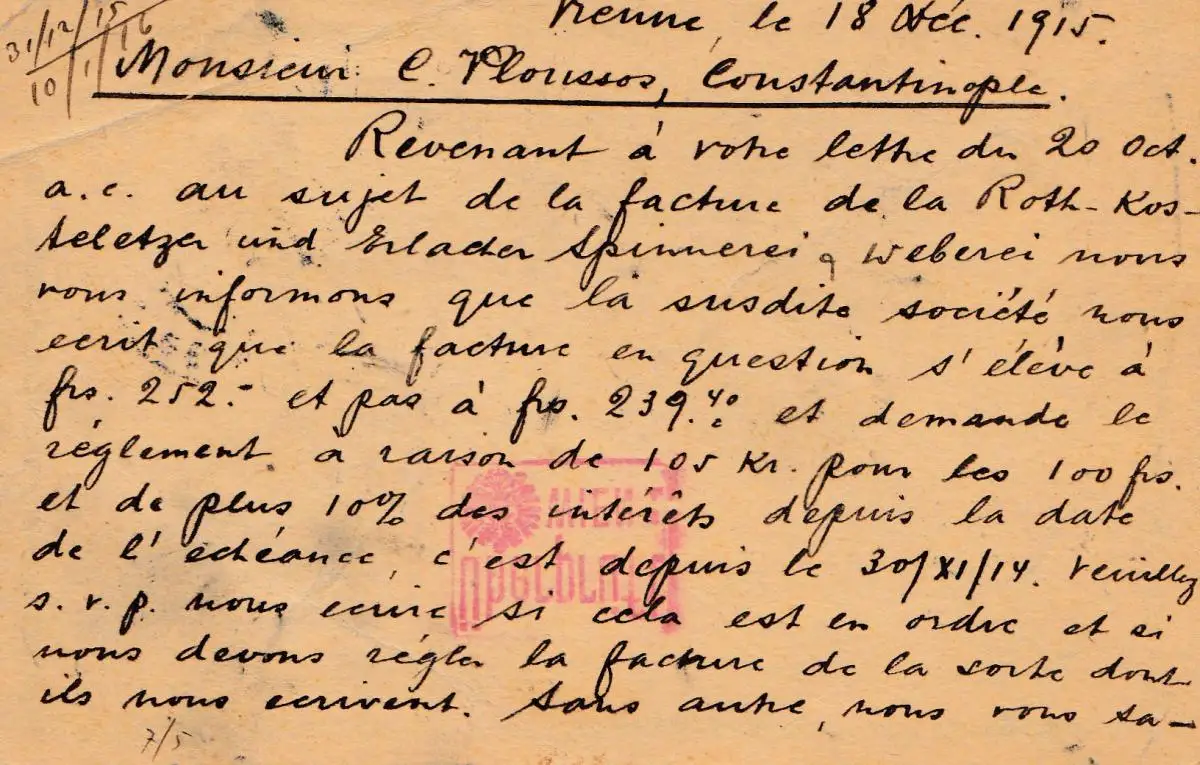 Vienne, le 18 Déc. 1915.
31/12/15
10/1/16
Monsieur C. Ploussos, Constantinople.
Revenant à votre lettre du 20 Oct.
a.c. au sujet de la facture de la Roth-Kos-
teletzer und Erlacher Spinnerei & Weberei nous
vous informons que la susdite société nous
ecrit que la facture en question s'élève à
frs. 252.- et pas à frs. 239.40 et demande le
réglement à raison de 105 Kr. pour les 100 frs.
et de plus 10% des intérêts depuis la date
de l'échéance, c'est depuis le 30/XI/14. Veuillez
s.v.p. nous ecrire si cela est en ordre et si
nous devons régler la facture de la sorte dont
ils nous ecrivent. Sans autre, nous vous sa-
7/5